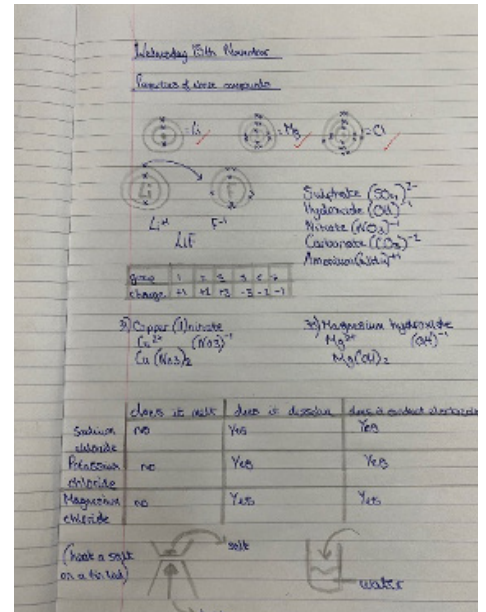 Wednesday 15th November
Properties of ionic compounds
= Li
= Mg
= Cl
Li
F
Li+1
F-1
LiF
Sulphate (SO4)2-
Hydroxide (OH)-1
Nitrate (NO3)-1
Carbonate (CO3)-2
Ammonium +1
group 1 2 3 5 6 7
charge +1 +2 +3 -3 -2 -1
Copper (II) nitrate
Cu2+ (NO3)-1
Cu(NO3)2
Magnesium hydroxide
Mg2+ (OH)-1
Mg(OH)2
does it melt does it dissolve does it conduct electricity
Sodium chloride no Yes Yes
Potassium chloride no Yes Yes
Magnesium chloride no Yes Yes
(heat a salt
on a tin lid)
salt
water